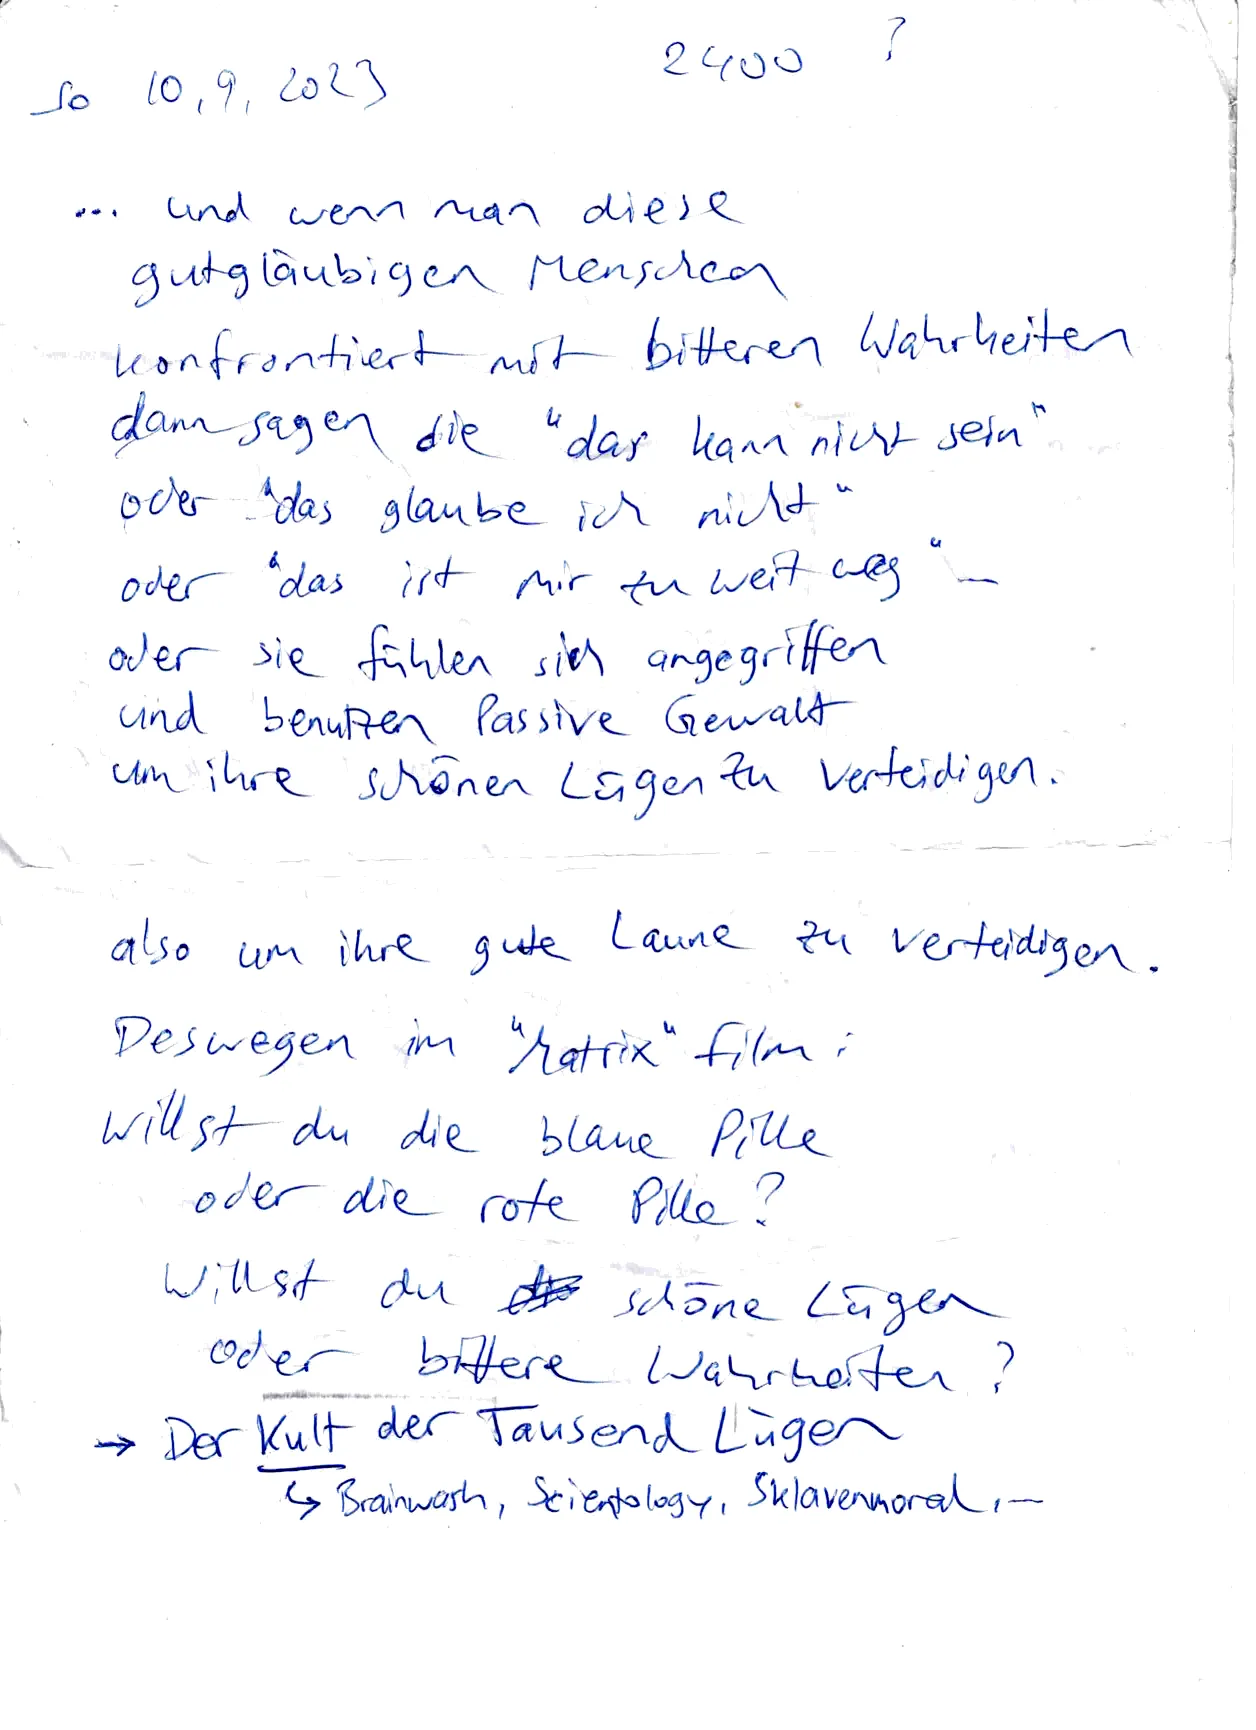 So 10.9.2023 2400 ?
... und wenn man diese
gutgläubigen Menschen
konfrontiert mit bitteren Wahrheiten
dann sagen die "das kann nicht sein"
oder "das glaube ich nicht"
oder "das ist mir zu weit weg" —
oder sie fühlen sich angegriffen
und benutzen Passive Gewalt
um ihre schönen Lügen zu verteidigen.
also um ihre gute Laune zu verteidigen.
Deswegen im "Matrix" film:
Willst du die blaue Pille
oder die rote Pille?
Willst du schöne Lügen
oder bittere Wahrheiten?
→ Der Kult der Tausend Lügen
↳ Brainwash, Scientology, Sklavenmoral, —